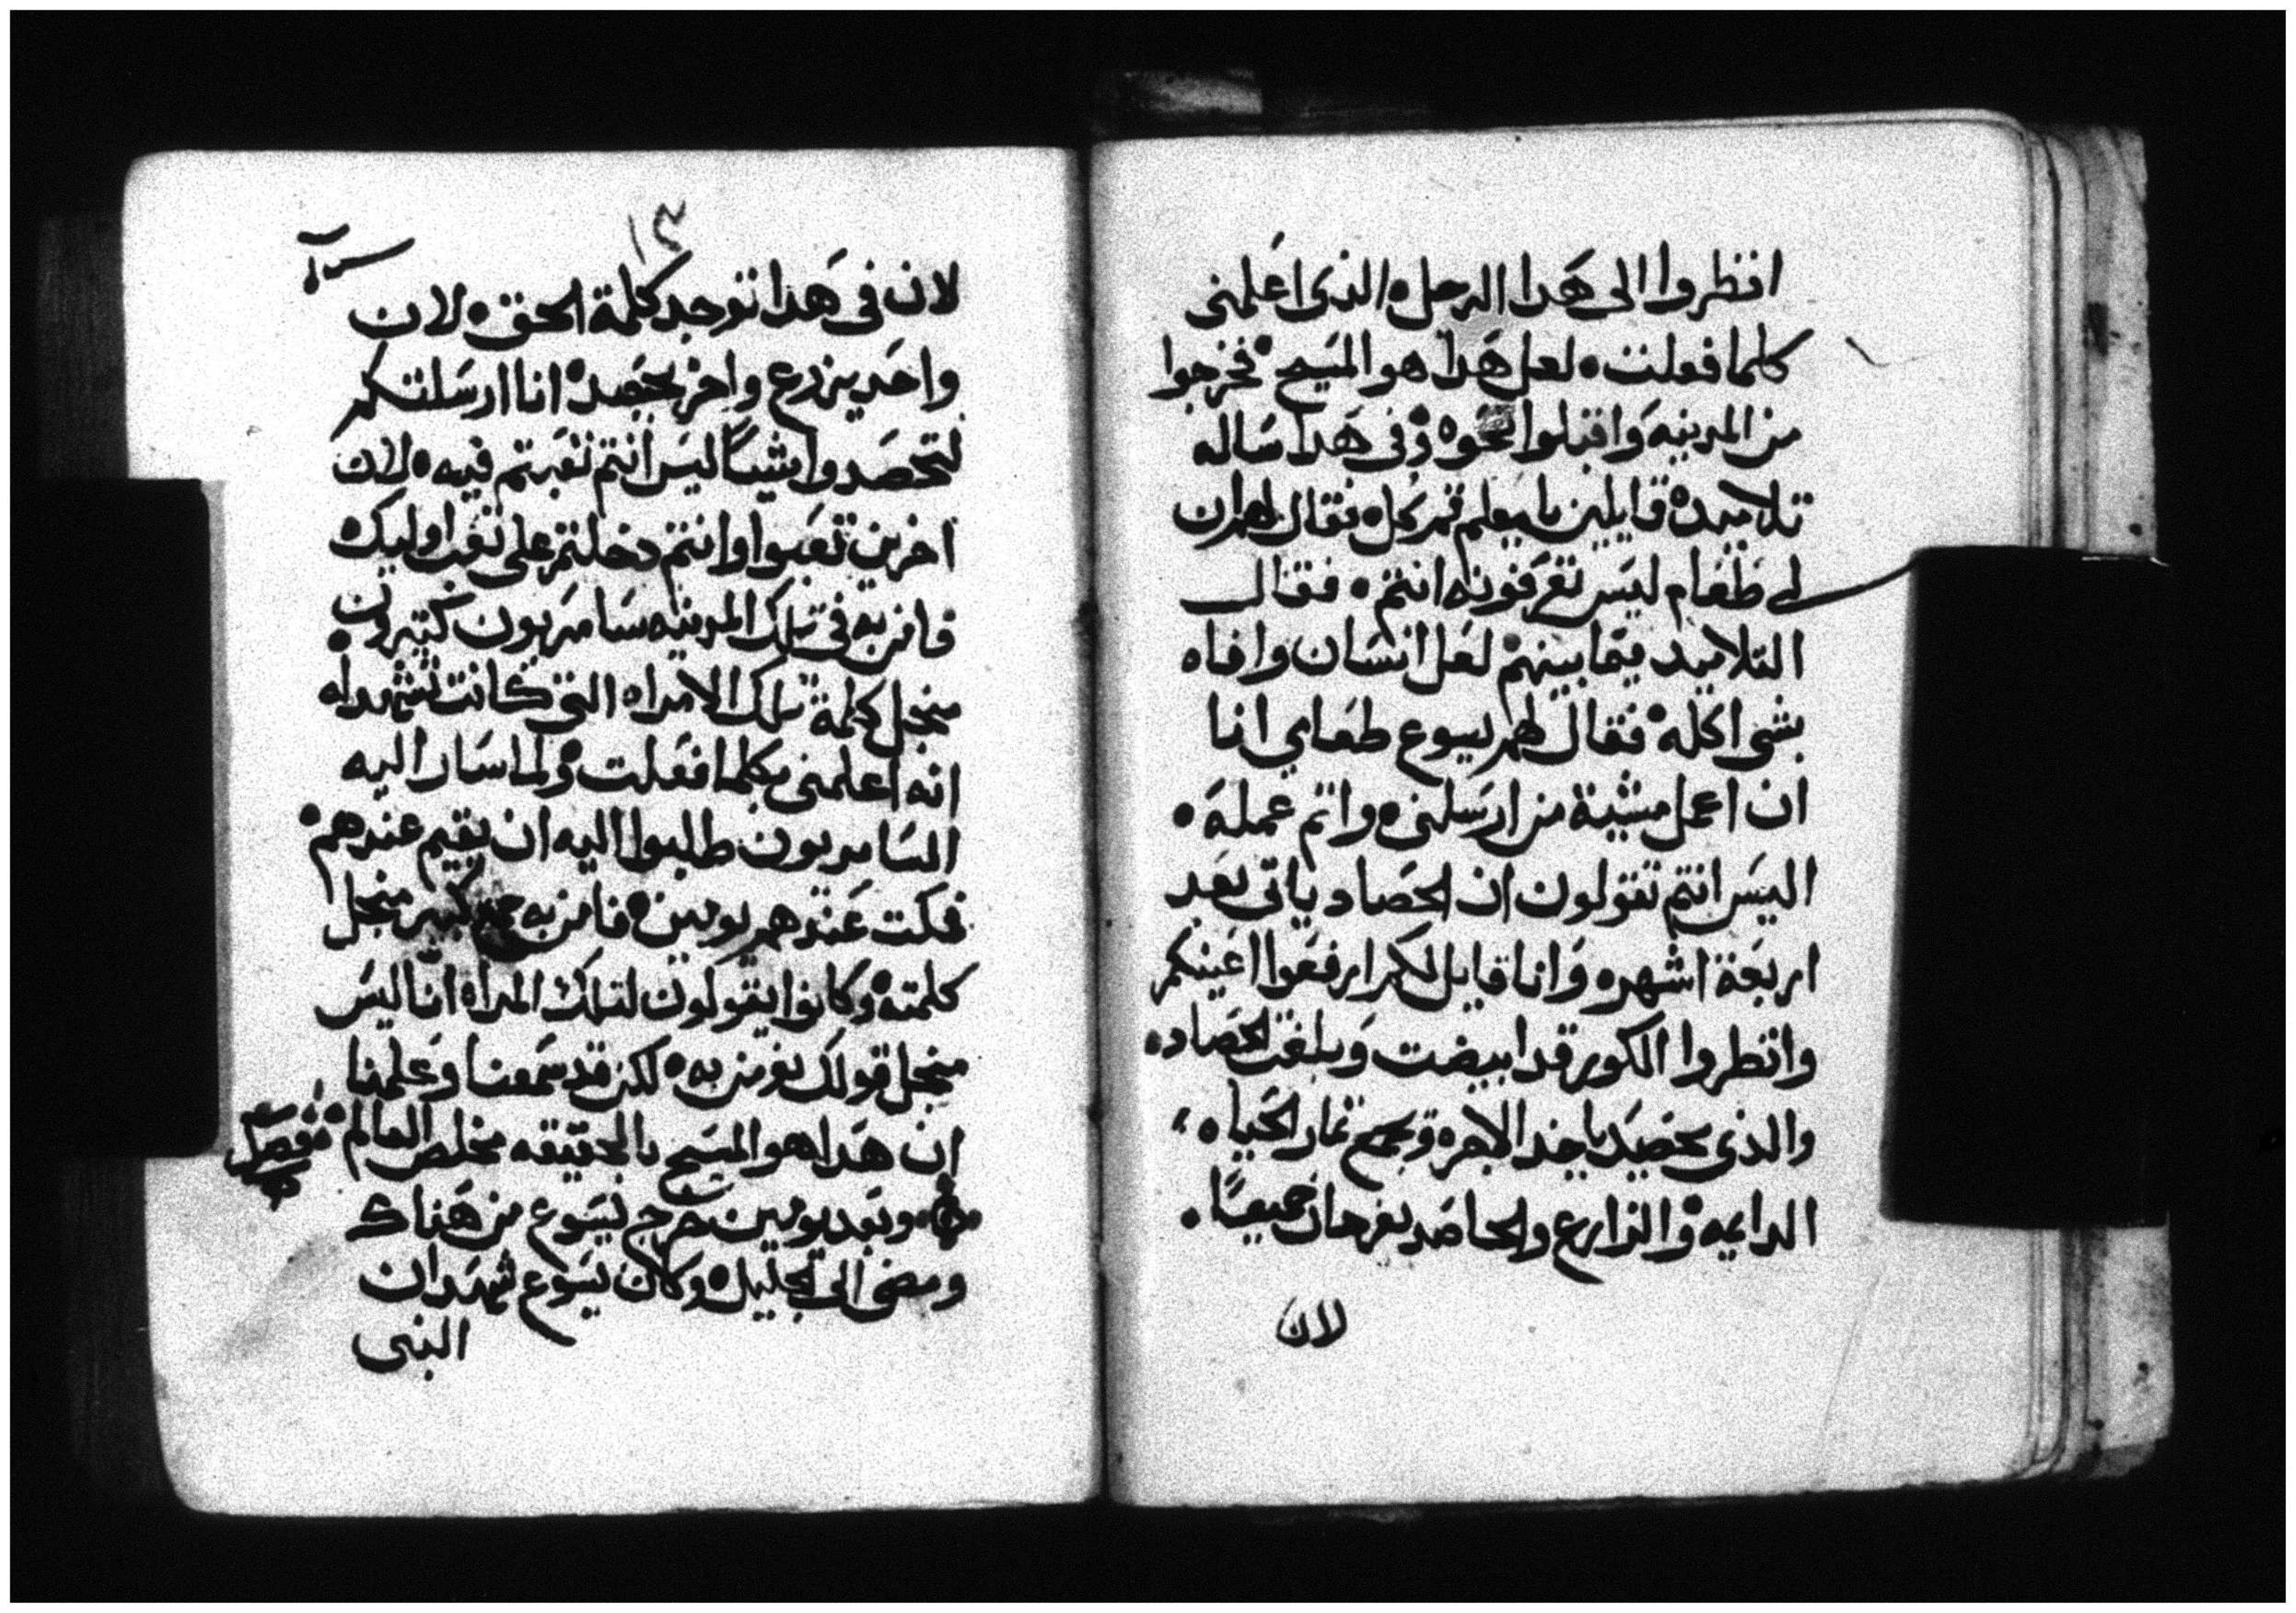 انظروا الى هدا الرجل الذى اعلمنى
كلما فعلت لعل هدا هو المسيح فخرجوا
من المدينه واقبلوا نحوه وفى هدا ساله
تلاميده قايلين يا معلم قم كل فقال لهم ان
لى طعام ليس تعرفونه انتم فقال
التلاميد فيما بينهم لعل انسان وافاه
بشى اكله فقال لهم يسوع طعامي انا
ان اعمل مشية من ارسلنى واتم عمله
اليس انتم تقولون ان الحصاد ياتى بعد
اربعة اشهر وانا قايل لكم ارفعوا اعينكم
وانظروا الكور قد ابيضت وبلغت الحصاد
والذى يحصد ياخد الاجره ويجمع تمار الحياه
الدايمه والزارع والحاصد يفرحان جميعًا
لان
١٢
لان فى هدا توجد كلمة الحق لان
واحد يزرع واخر يحصد انا ارسلتكم
لتحصدوا شيًا ليس انتم تعبتم فيه لان
اخرين تعبوا وانتم دخلتم على تعب اوليك
فامن به فى تلك المدينه سامريون كتيرون
منجل كلمة تلك الامراه التى كانت تشهد له
انه اعلمنى بكلما فعلت ولما سار اليه
السامريون طلبوا اليه ان يقيم عندهم
فمكت عندهم يومين فامن به جمع كتير منجل
كلمته وكانوا يقولون لتلك المراه انا ليس
منجل قولك نومن به لكن قد سمعنا وعلمنا
ان هدا هو المسيح بالحقيقه مخلص العالم
وبعد يومين خرج يسوع من هناك
ومضى الى الجليل وكان يسوع شهد ان
النبى